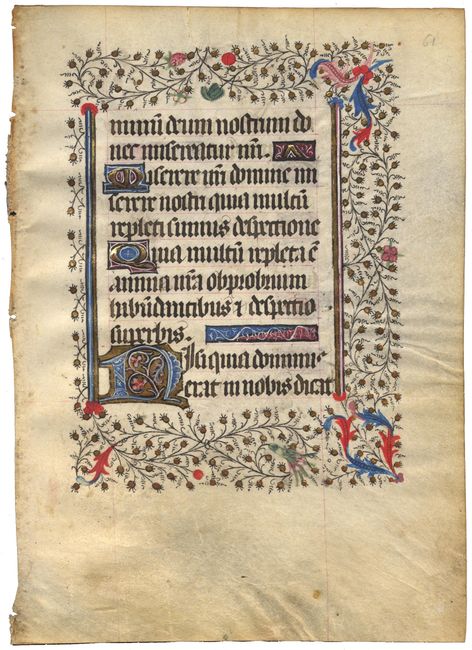 61
minũ deum nostrum do
nec misereatur nr̃i.
Miserere nr̃i domine mi
serere nostri quia multũ
repleti sumus despectione
Quia multũ repleta ẽ
anima nr̃a obprobrium
habũdãtibus & despectio
superbis.
Nisi quia dominꝰ
erat in nobis dicat